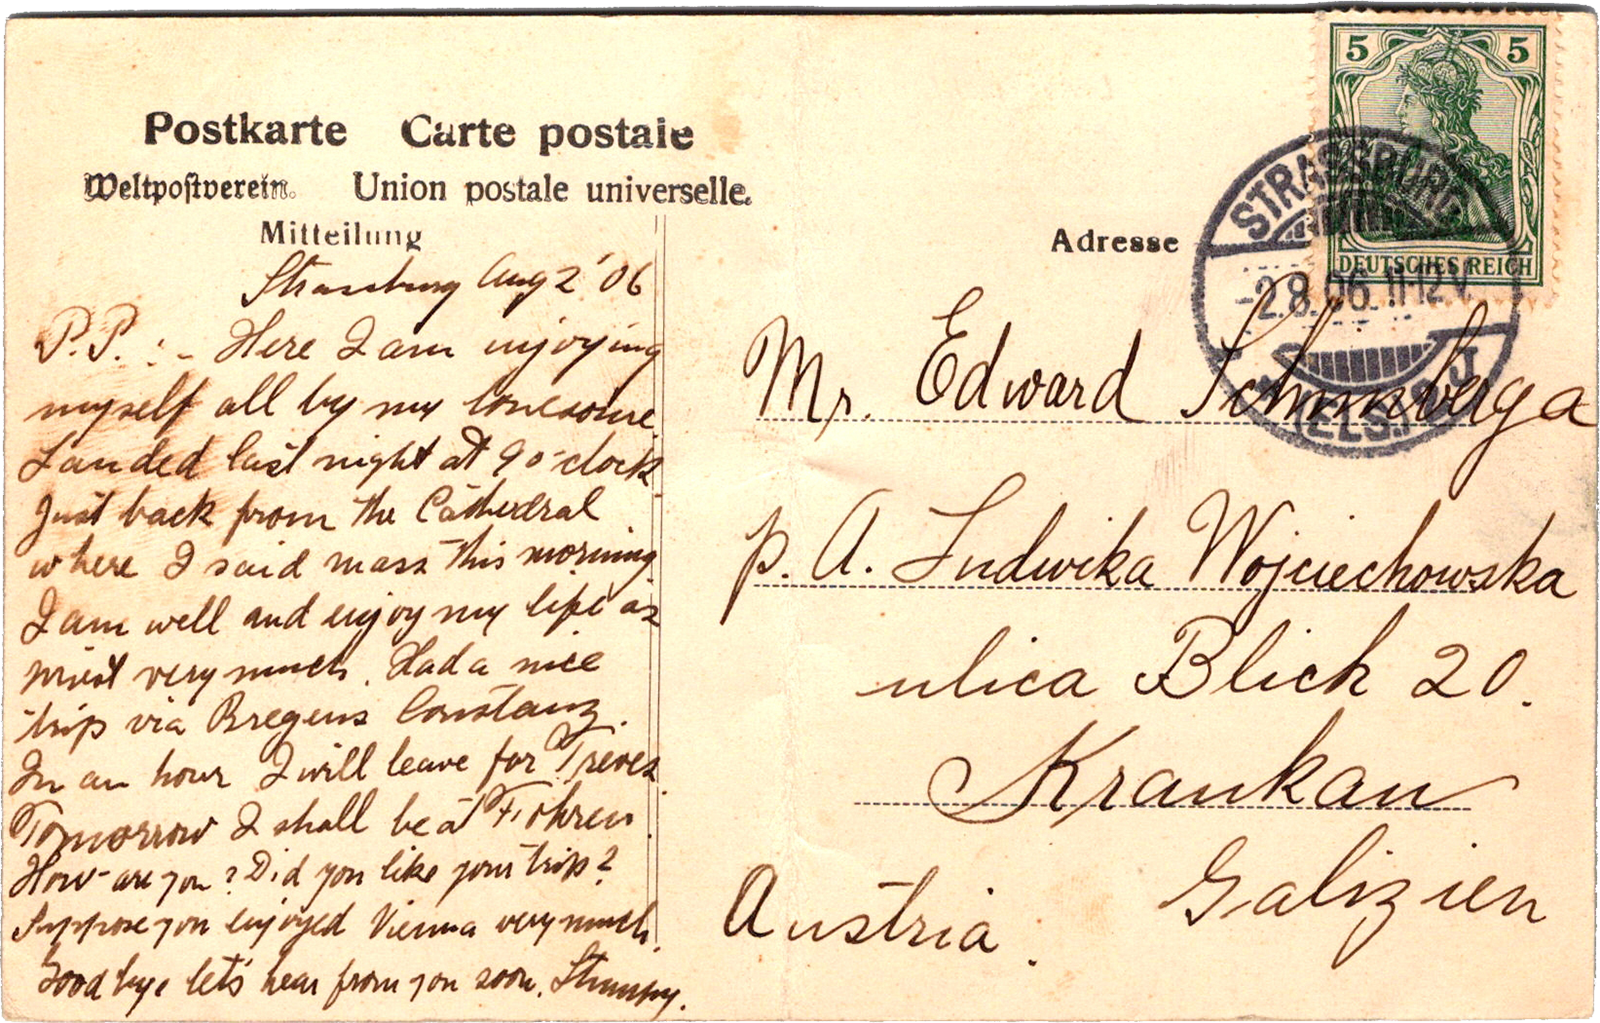 Postkarte Carte postale
Weltpostverein. Union postale universelle.
Mitteilung
Strassburg Aug 2 '06
P.P. : - Here I am enjoying
myself all by my lonesome.
Landed last night at 9 o'clock
Just back from the Cathedral
where I said mass this morning
I am well and enjoy my life as
most very much. Had a nice
trip via Bregens Constanz.
In an hour I will leave for Treves.
Tomorrow I shall be at Föhren.
How are you? Did you like your trip?
Suppose you enjoyed Vienna very much.
Good bye let's hear from you soon. Stumpy.
5 5
DEUTSCHES REICH
STRASSBURG
-2.8.06.11-12V.
Adresse
Mr. Edward
p. A. Ludwika Wojciechowska
ulica Blich 20.
Krankau
Galizien
Austria.